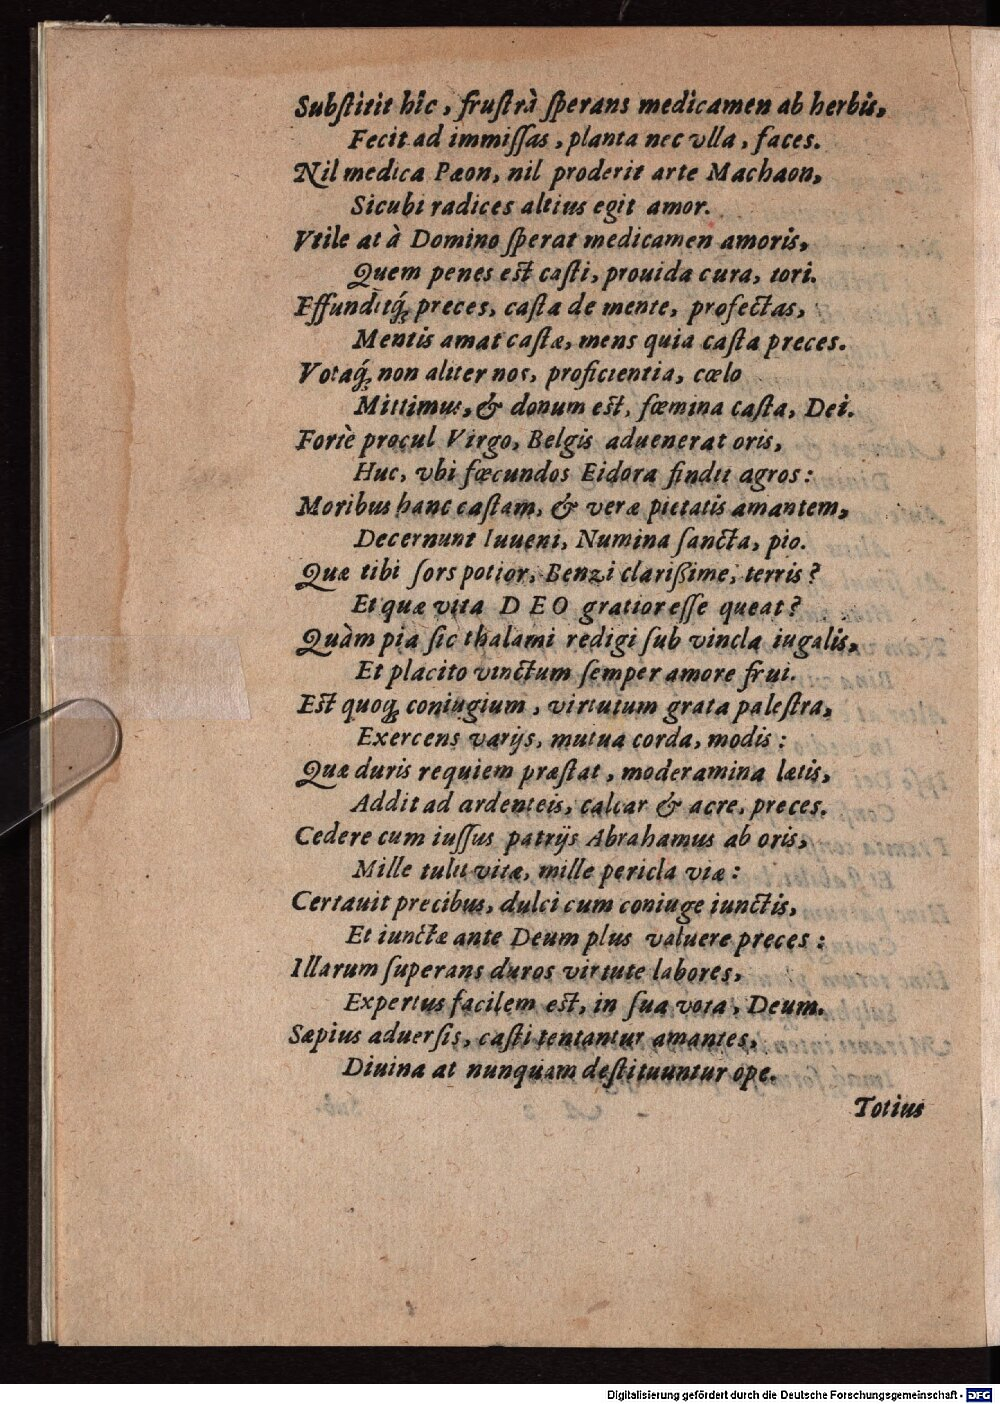 Subſtitit hîc, fruſtrà ſperans medicamen ab herbis,
Fecit ad immiſſas, planta nec vlla, faces.
Nil medica Pæon, nil proderit arte Machaon,
Sicubi radices altius egit amor.
Vtile at à Domino ſperat medicamen amoris,
Quem penes eſt caſti, prouida cura, tori.
Effundìtq́; preces, caſta de mente, profectas,
Mentis amat caſtæ, mens quia caſta preces.
Votaq́; non aliter nos, proficientia, cœlo
Mittimus, & donum eſt, fœmina caſta, Dei.
Fortè procul Virgo, Belgis aduenerat oris,
Huc, vbi fœcundos Eidora findit agros:
Moribus hanc caſtam, & veræ pietatis amantem,
Decernunt Iuueni, Numina ſancta, pio.
Quæ tibi ſors potior, Benzi clarißime, terris?
Et quæ vita DEO gratior eſſe queat?
Quàm pia ſic thalami redigi ſub vincla iugalis,
Et placito vinctum ſemper amore frui.
Eſt quoq; coniugium, virtutum grata paleſtra,
Exercens varijs, mutua corda, modis:
Quæ duris requiem præſtat, moderamina lætis,
Addit ad ardenteis, calcar & acre, preces.
Cedere cum iuſſus patrijs Abrahamus ab oris,
Mille tulit vitæ, mille pericla viæ:
Certauit precibus, dulci cum coniuge iunctis,
Et iunctæ ante Deum plus valuere preces:
Illarum ſuperans duros virtute labores,
Expertus facilem eſt, in ſua vota, Deum.
Sæpius aduerſis, caſti tentantur amantes,
Diuina at nunquam deſtituuntur ope.
Totius
Digitalisierung gefördert durch die Deutsche Forschungsgemeinschaft - DFG